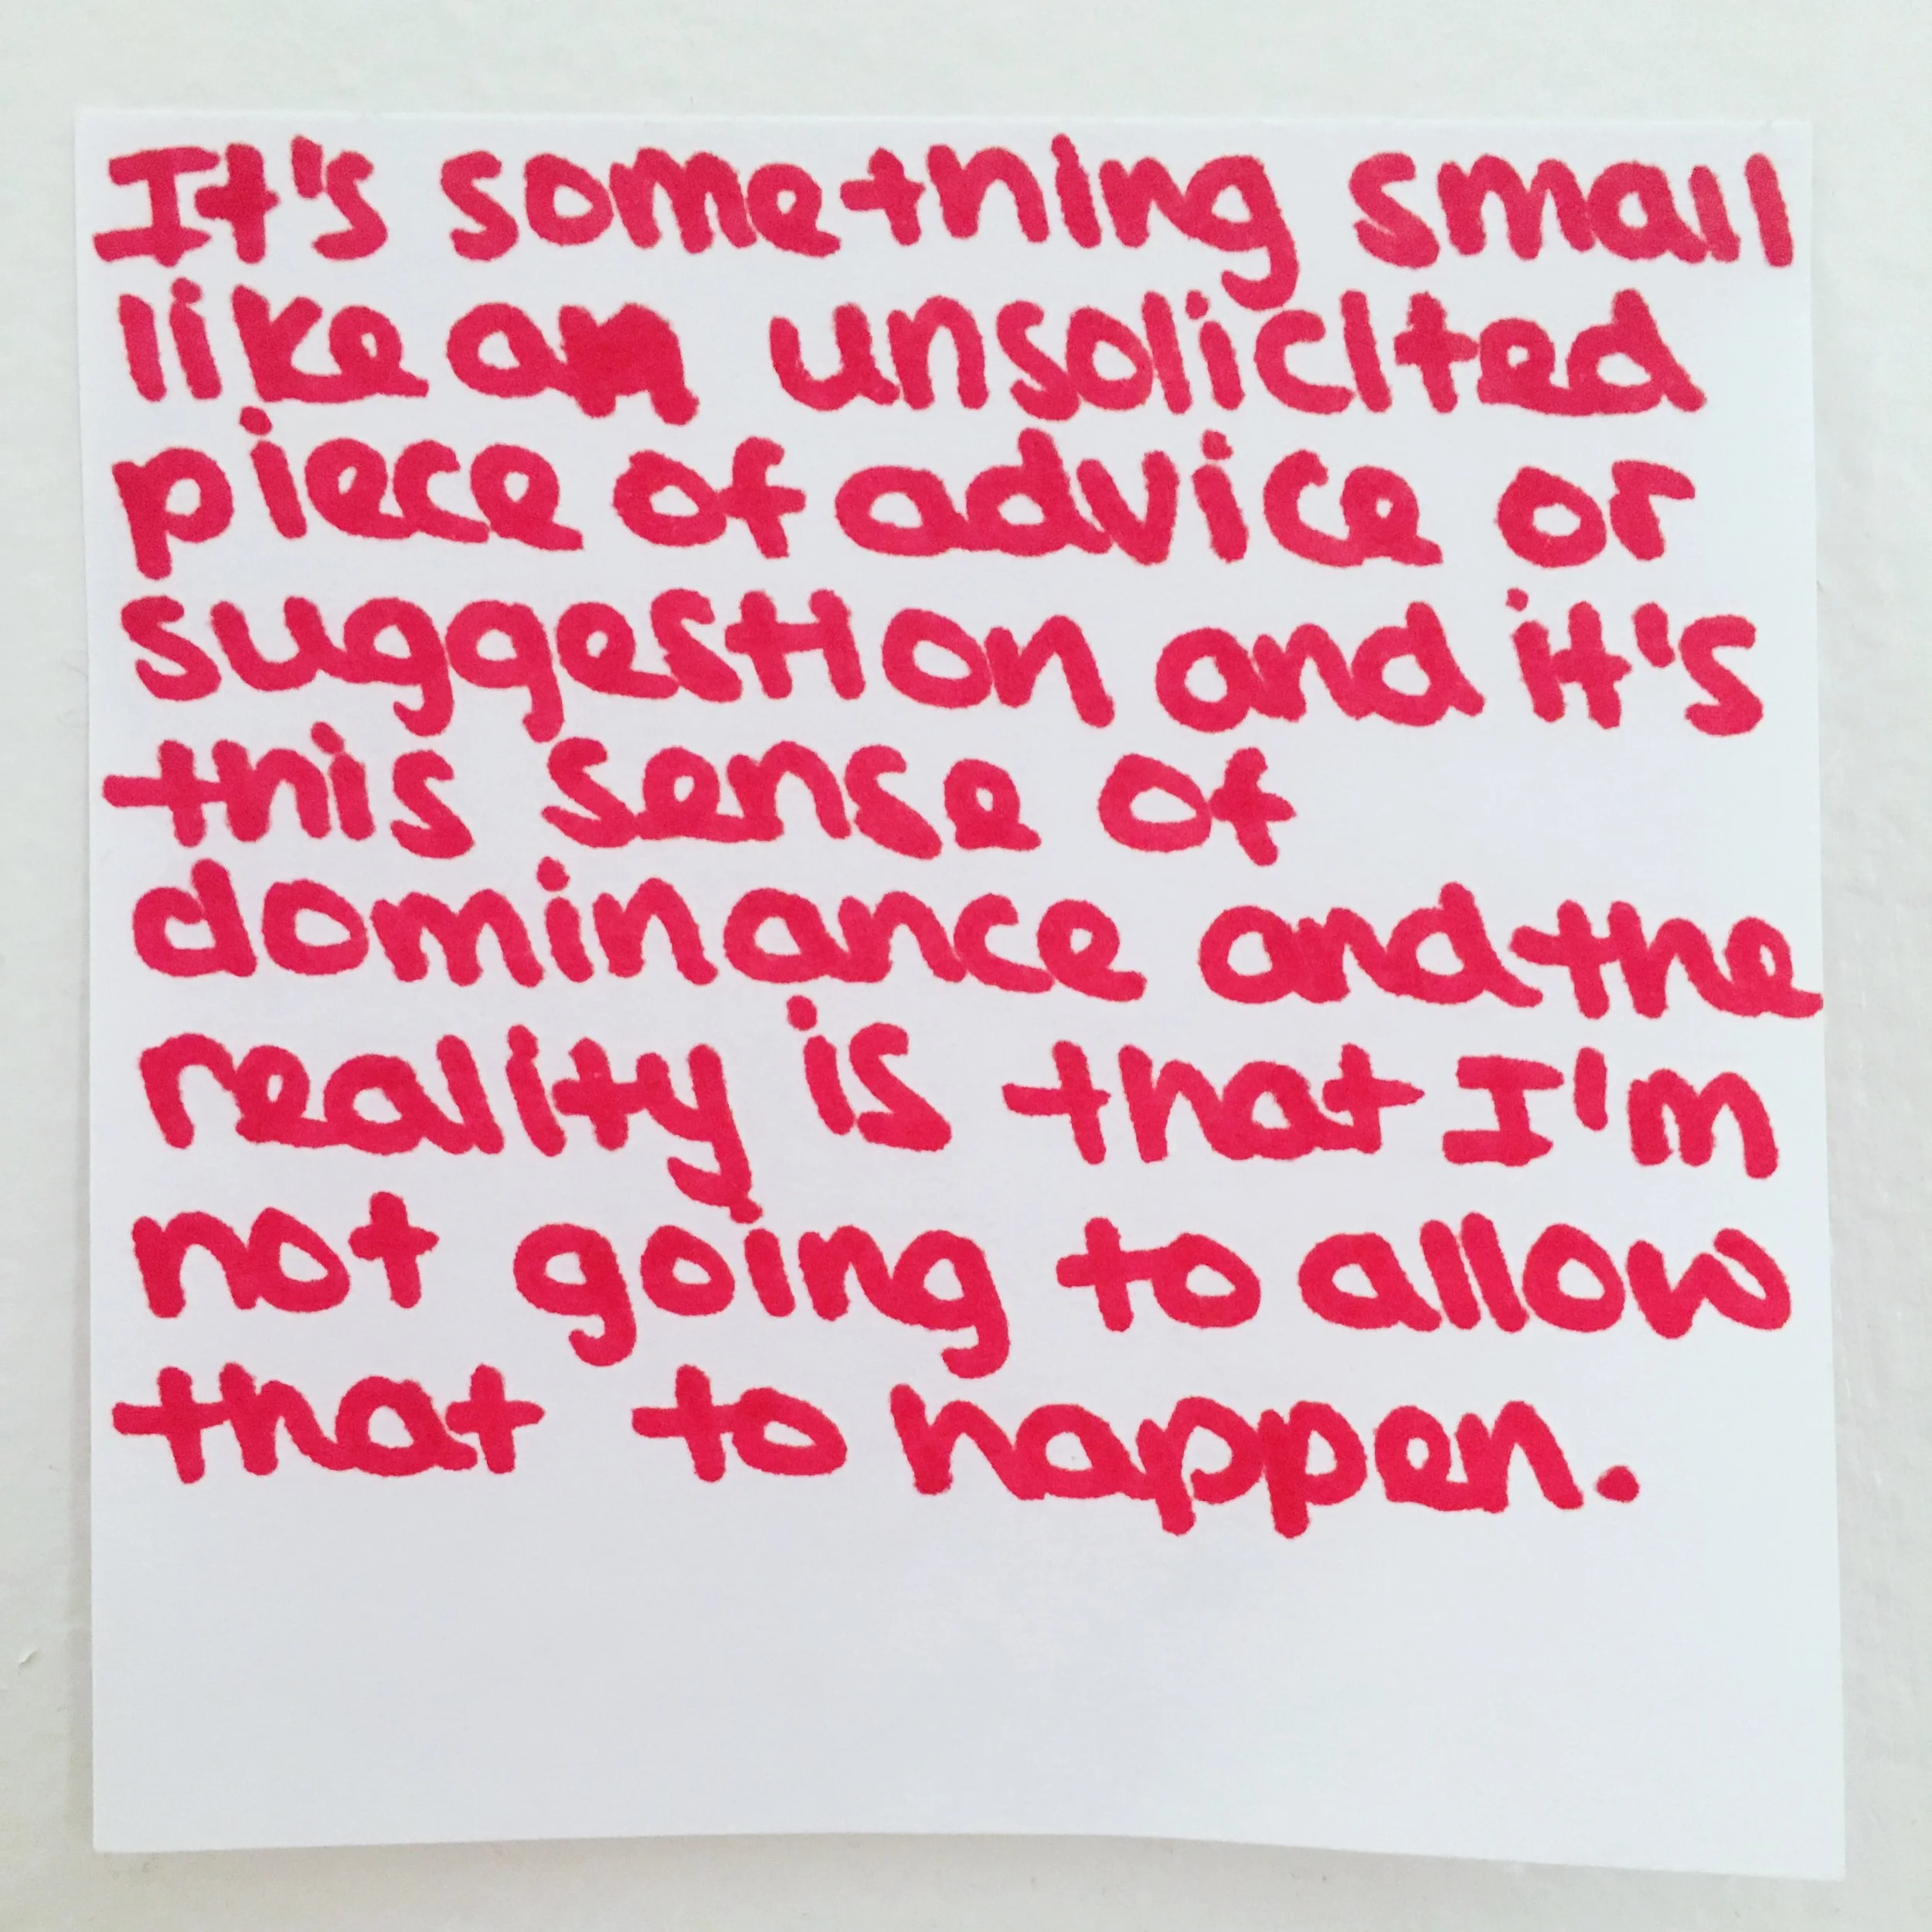 It's something small
like an unsolicited
piece of advice or
suggestion and it's
this sense of
dominance and the
reality is that I'm
not going to allow
that to happen.